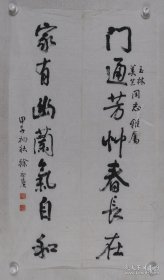 門通芳艸春長在
玉林
美芝同志雅屬
家有幽蘭氣自和
甲子初秋徐